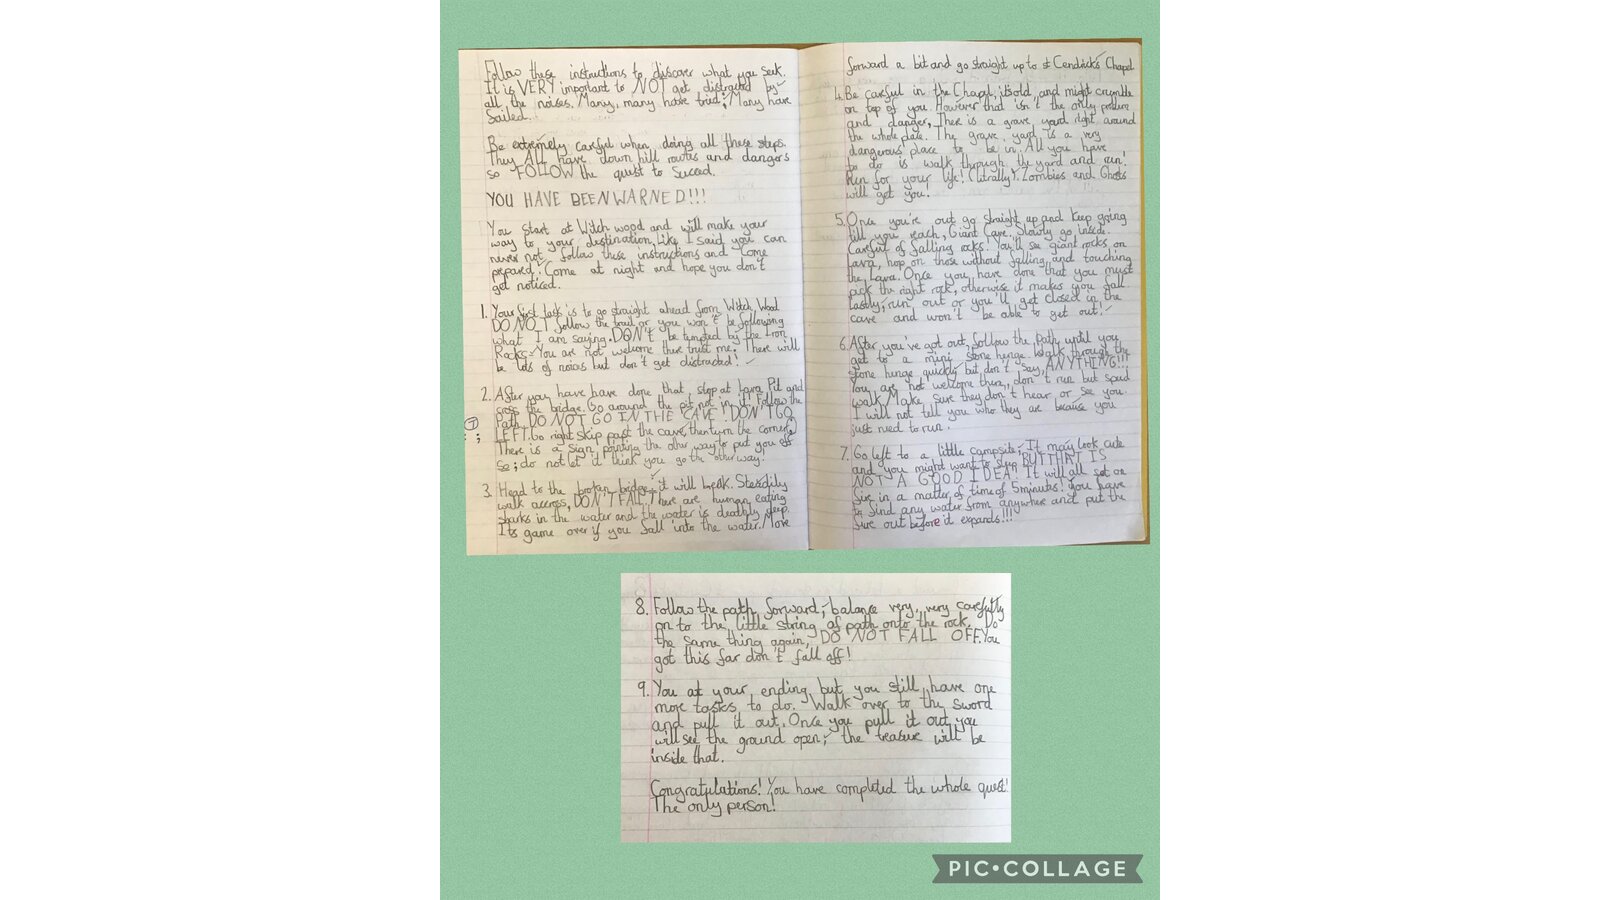 Follow these instructions to discover what you seek.
It is VERY important to NOT get distracted by
all the noises. Many, many have tried; Many have
failed.
Be extremely careful when doing all these steps.
They All have down hill routes and dangers
so FOLLOW the quest to succeed.
YOU HAVE BEEN WARNED!!!
You start at Witch wood and will make your
way to your destination, Like I said you can
never not follow these instructions and come
prepared! Come at night and hope you don't
get noticed.
1. Your first task is to go straight ahead from Witch Wood
DO NOT follow the trail or you won't be following
what I am saying. DON'T be tempted by the Iron
Rocks. You are not welcome there trust me. There will
be lots of noises but don't get distracted!
2. After you have have done that stop at Lava Pit and
cross the bridge. Go around the pit not in it! Follow the
Path DO NOT GO IN THE CAVE! DON'T GO
LEFT. Go right skip past the cave, then turn the corner
There is a sign pointing the other way to put you off
so; do not let it think you go the other way!
3. Head to the broken bridge, it will break. Steadily
walk accross, DON'T FALL. There are human eating
sharks in the water and the water is deathly deep.
Its game over if you fall into the water. Move
forward a bit and go straight up to st Cendrick's Chapel
4. Be careful in the Chapel, its old, and might crumble
on top of you. However that isn't the only
and danger, There is a grave yard right around
the whole place. The grave yard is a very
dangerous place to be in. All you have
to do is walk through the yard and run!
Run for your life! (litrally). Zombies and Ghosts
will get you!
5. Once you're out go straight up and keep going
till you reach, Giant Cave. Slowly go inside.
Careful of falling rocks! You'll see giant rocks on
Lava, hop on those without falling and touching
the Lava. Once you have done that you must
pick the right rock, otherwise it makes you fall
Lastly, run out or you'll get closed in the
cave and won't be able to get out!
6. After you've got out, follow the path until you
get to a mini stone henge. Walk through the
stone henge quickly but don't say, ANYTHING!!!
You are not welcome there, don't run but speed
walk. Make sure they don't hear or see you.
I will not tell you who they are because you
just need to run.
7. Go left to a little campsite, It may look cute
and you might want to sleep BUT THAT IS
NOT A GOOD IDEA! It will all set on
fire in a matter of time of 5 minutes! You have
to find any water from anywhere and put the
fire out before it expands!!!
8. Follow the path forward, balance very, very carefully
on to the little string of path onto the rock. Do
the same thing again, DO NOT FALL OFF. You
got this far don't fall off!
9. You at your ending but you still have one
more tasks to do. Walk over to the sword
and pull it out. Once you pull it out you
will see the ground open; the treasure will be
inside that.
Congratulations! You have completed the whole quest!
The only person!
PIC•COLLAGE